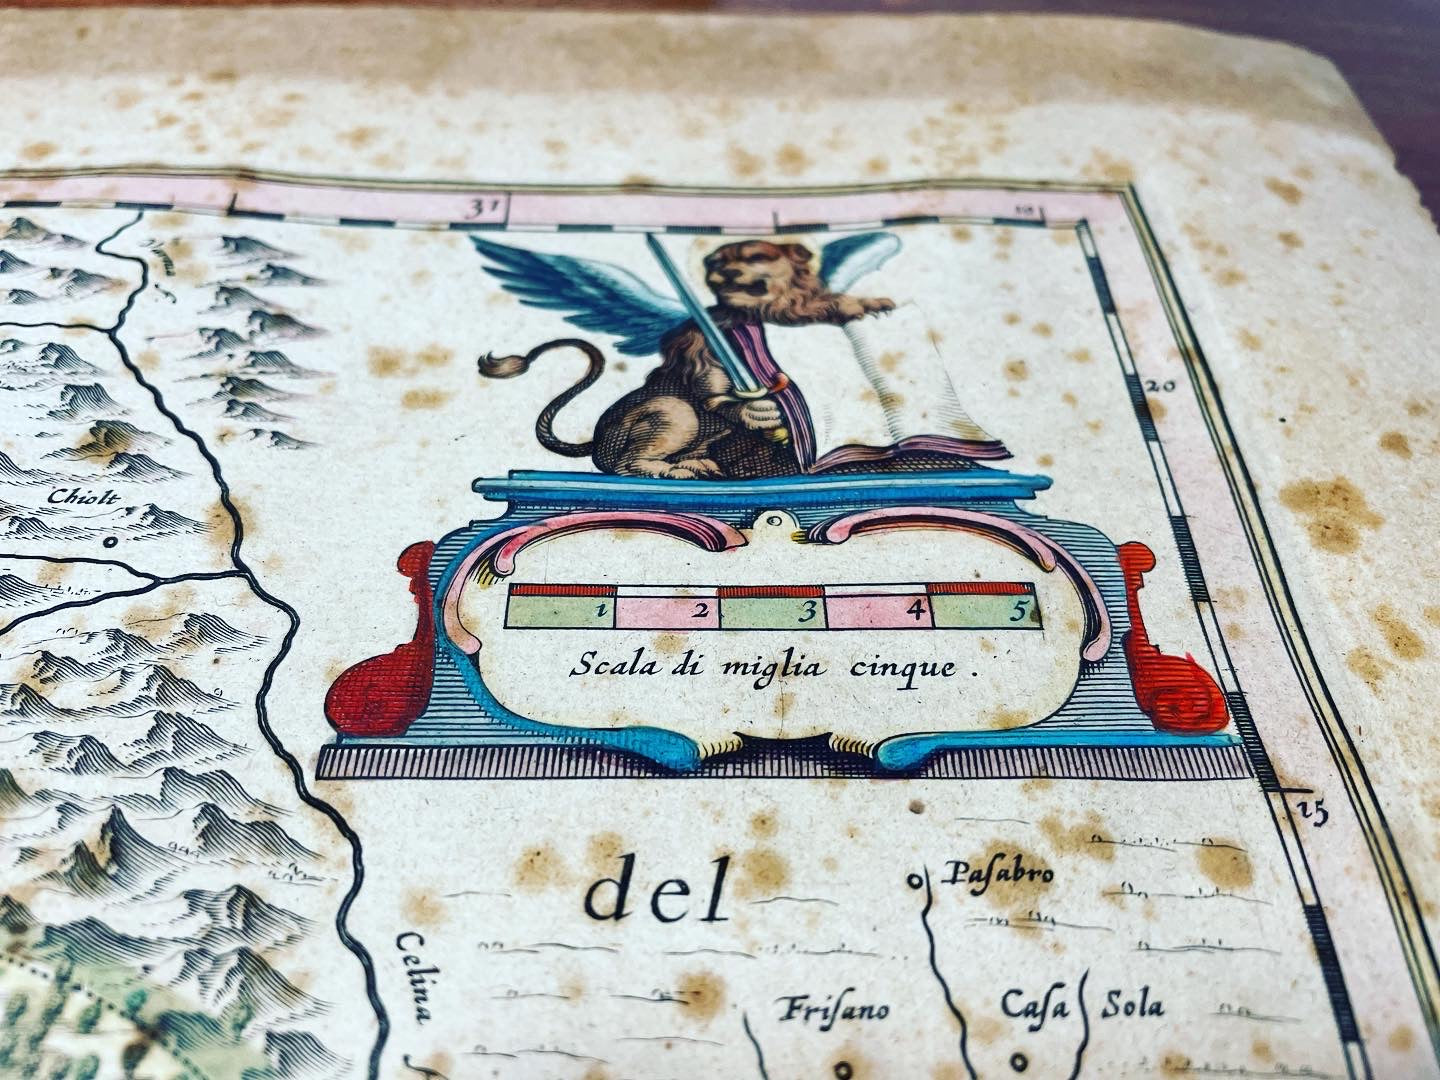 31
20
Chiolt
1 2 3 4 5
Scala di miglia cinque .
15
del
Paſabro
Celina
Friſano
Caſa Sola